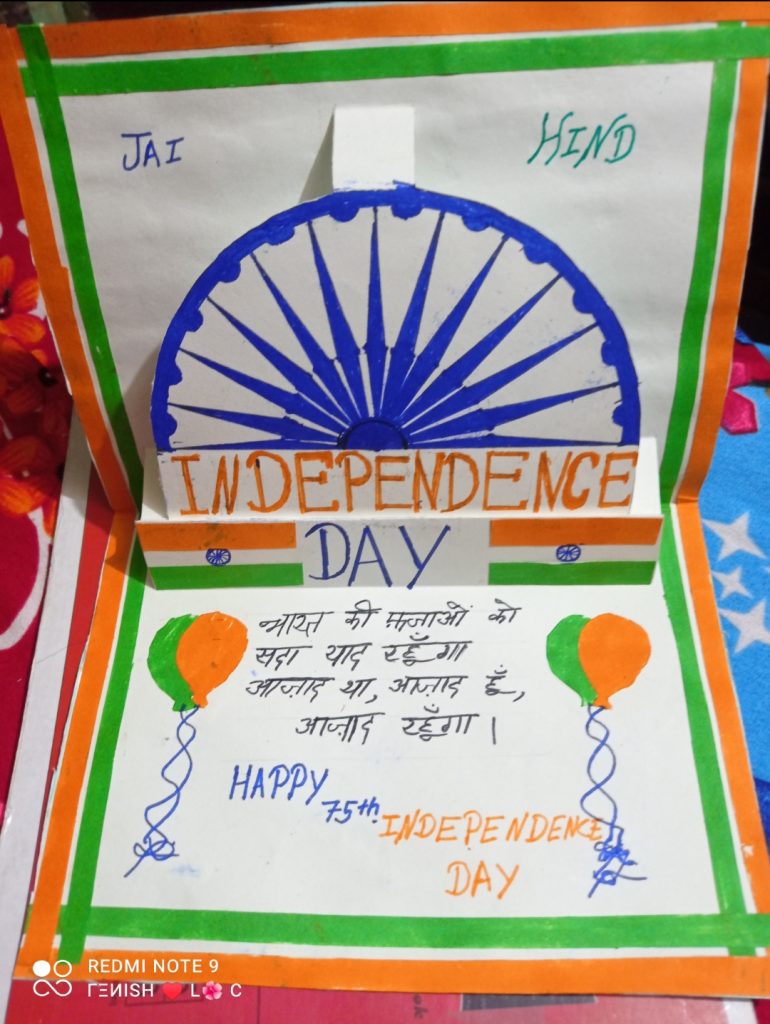 JAI HIND
INDEPENDENCE
DAY
भारत की फजाओं को
सदा याद रहूँगा
आज़ाद था, आज़ाद हूँ,
आज़ाद रहूँगा ।
HAPPY
75th INDEPENDENCE
DAY
REDMI NOTE 9
ΓΞИISH ❤️ L🌸 C